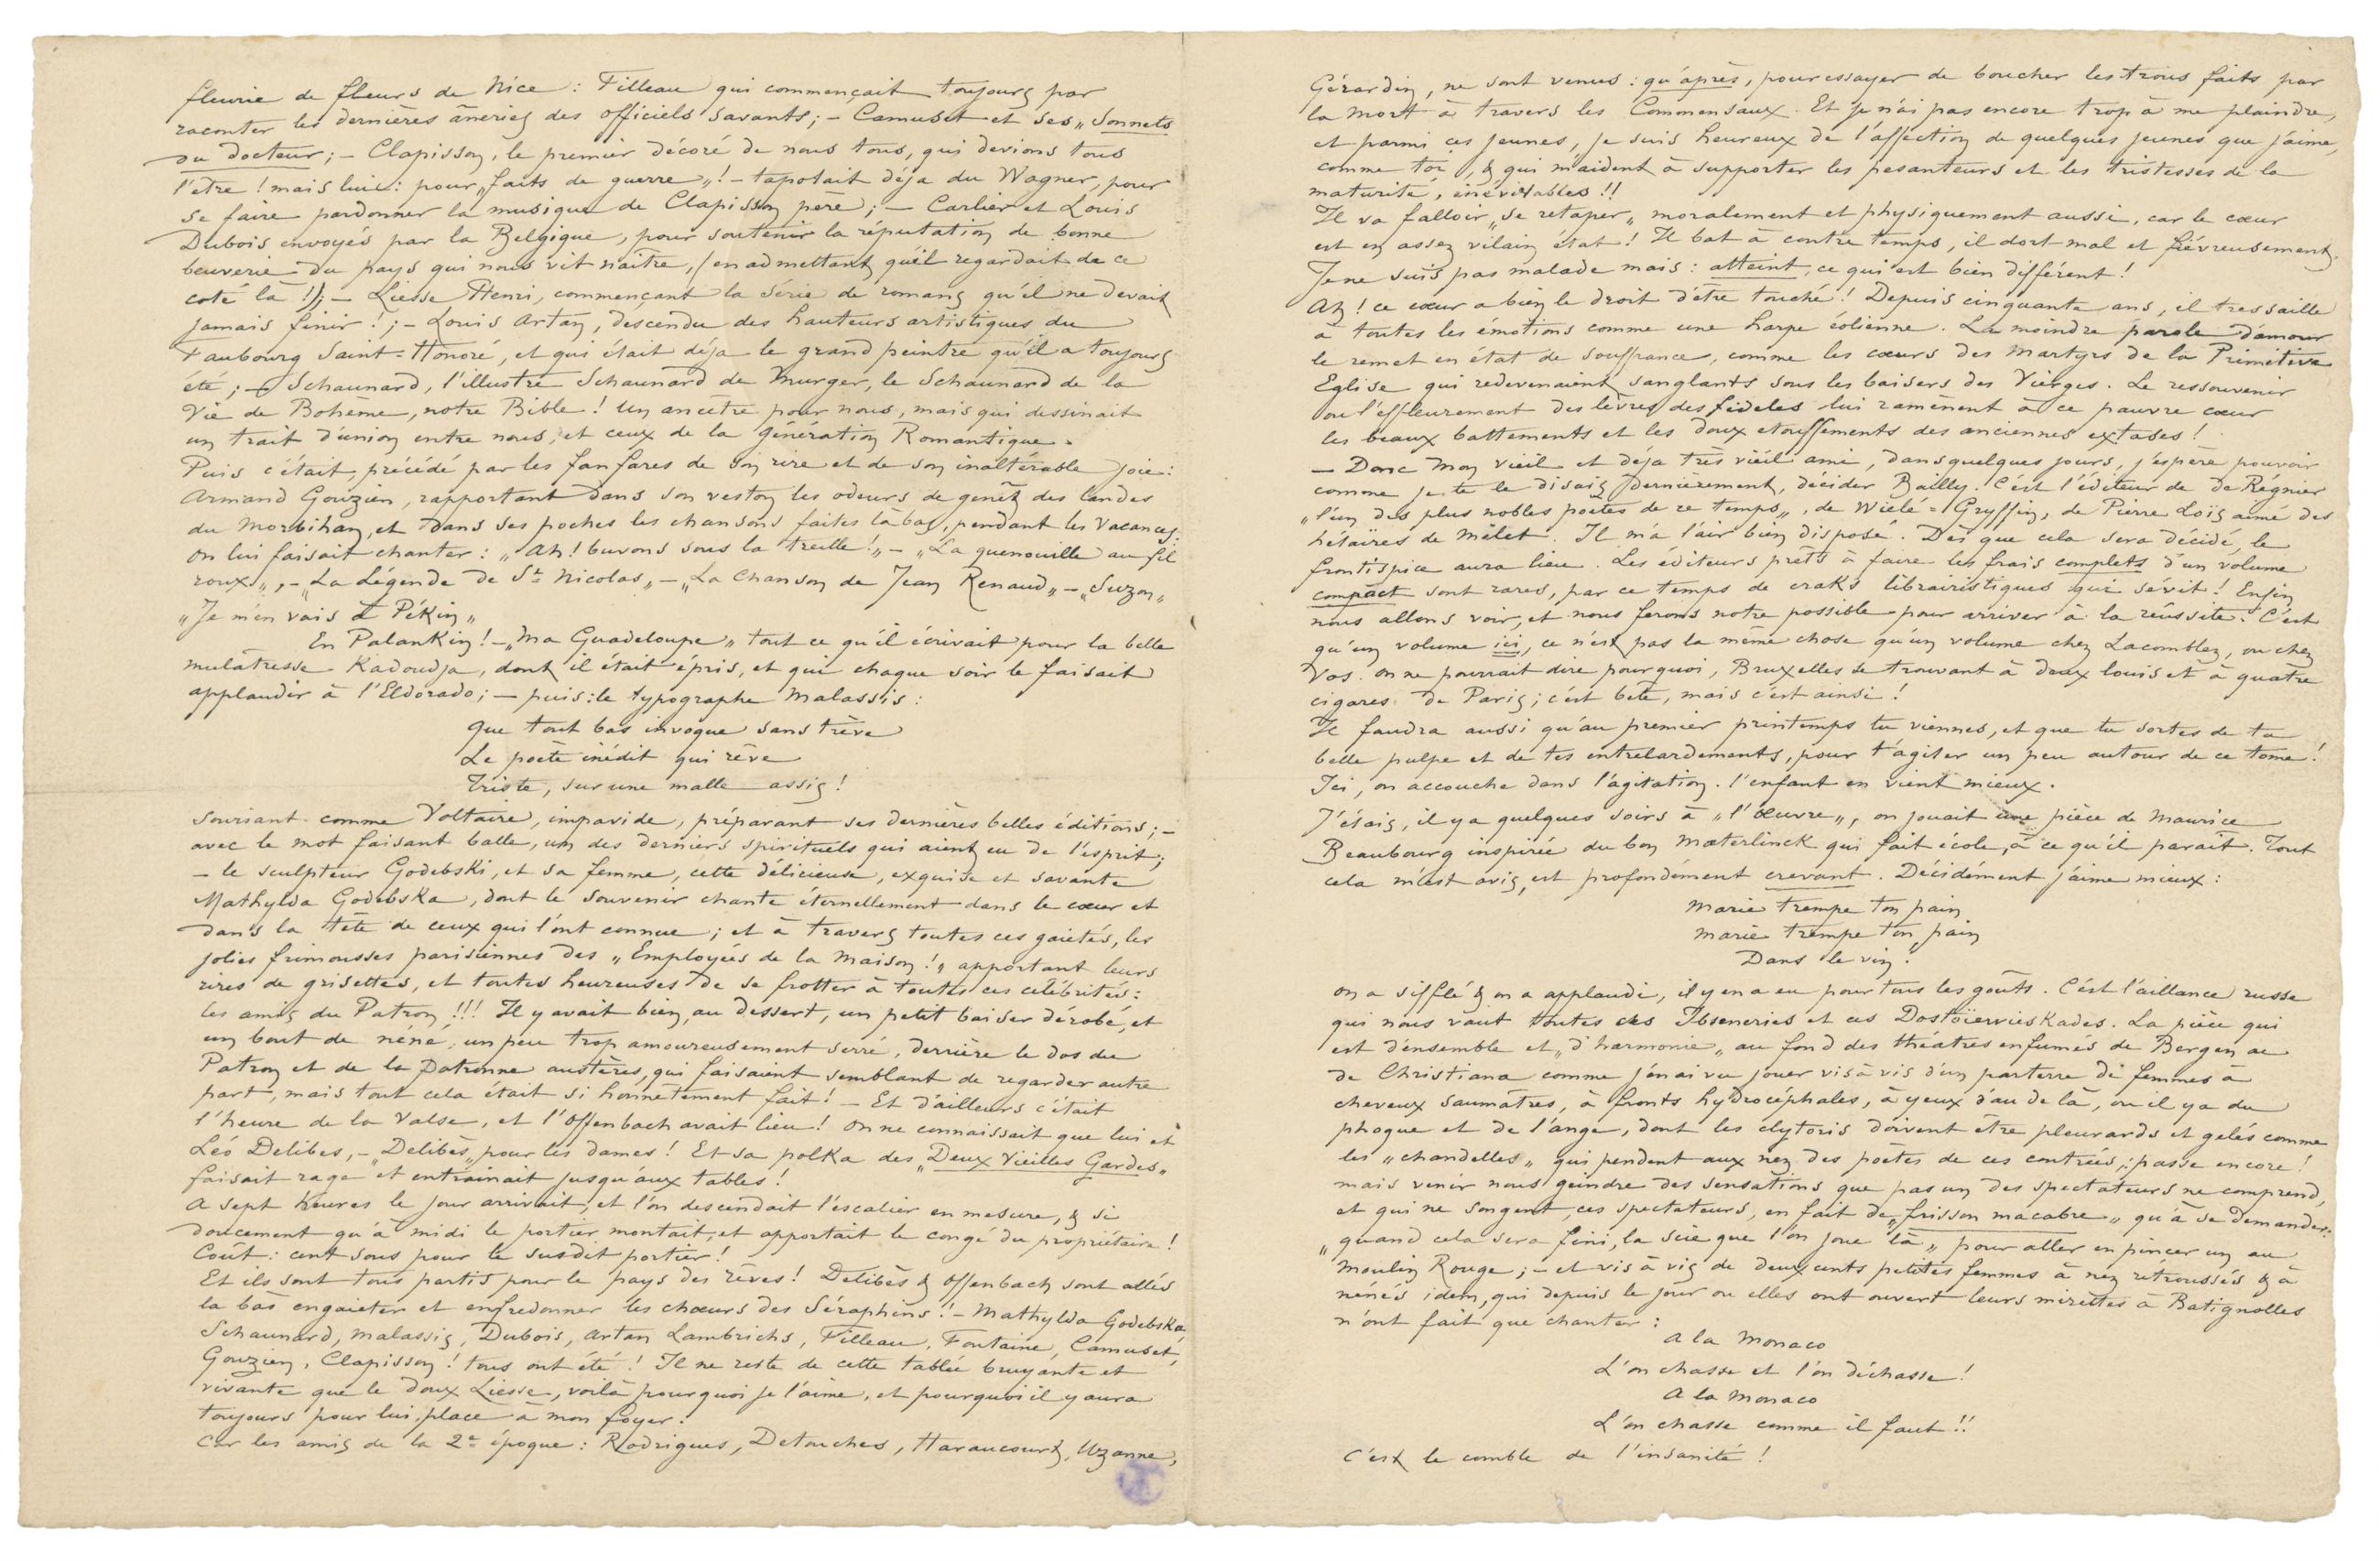 fleurie de fleurs de Nice : Filleau qui commençait toujours par
raconter les dernières âneries des officiels savants ; – Camuset et ses „ Sonnets
du docteur ; – Clapisson, le premier décoré de nous tous, qui devions tous
l'être ! mais lui : pour „ faits de guerre „ ! – tapotait déja du Wagner, pour
se faire pardonner la musique de Clapisson père ; – Carlier et Louis
Dubois envoyés par la Belgique, pour soutenir la réputation de bonne
beuverie du pays qui nous vit naitre, (en admettant qu'il regardait de ce
coté là !) ; – Liesse Henri, commençant la série de romans qu'il ne devait
jamais finir ! ; – Louis Artan, descendu des hauteurs artistiques du
Faubourg Saint-Honoré, et qui était déja le grand peintre qu'il a toujours
été ; – Schaunard, l'illustre Schaunard de Murger, le Schaunard de la
Vie de Bohème, notre Bible ! Un ancêtre pour nous, mais qui dessinait
un trait d'union entre nous, et ceux de la génération Romantique.
Puis c'était, précédé par les fanfares de son rire et de son inaltérable joie :
Armand Gouzien, rapportant dans son veston les odeurs de genêt des landes
du Morbihan, et dans ses poches les chansons faites là bas, pendant les vacances.
On lui faisait chanter : „ Ah ! buvons sous la treille ! „ – „ La quenouille au fil
roux „, – „ La Légende de St Nicolas „ – „ La Chanson de Jean Renaud „ – „ Suzon „
„ Je m'en vais à Pékin „
En Palankin ! – „ Ma Guadeloupe „ tout ce qu'il écrivait pour la belle
mulâtresse Kadoudja, dont il était épris, et qui chaque soir le faisait
applaudir à l'Eldorado ; – puis : le typographe Malassis :
Que tout bas invoque sans trève
Le poète inédit qui rêve
Triste, sur une malle assis !
Souriant comme Voltaire, impavide, préparant ses dernières belles éditions ; –
avec le mot faisant balle, un des derniers spirituels qui aient eu de l'esprit ;
– le sculpteur Godebski, et sa femme, cette délicieuse, exquise et savante
Mathylda Godebska, dont le souvenir chante éternellement dans le cœur et
dans la tête de ceux qui l'ont connue ; et à travers toutes ces gaietés, les
jolies frimousses parisiennes des „ Employées de la Maison ! „ apportant leurs
rires de grisettes, et toutes heureuses de se frotter à toutes ces célébrités :
les amis du Patron !!! Il y avait bien, au dessert, un petit baiser dérobé, et
un bout de néné, un peu trop amoureusement serré, derrière le dos du
Patron et de la Patronne austères, qui faisaient semblant de regarder autre
part, mais tout cela était si honnêtement fait ! – Et d'ailleurs c'était
l'heure de la Valse, et l'Offenbach avait lieu ! On ne connaissait que lui et
Léo Delibes, – „ Delibès „ pour les dames ! Et sa polka des „ Deux Vieilles Gardes „
faisait rage et entrainait jusqu'aux tables !
A sept heures le jour arrivait, et l'on descendait l'escalier en mesure, & si
doucement qu'à midi le portier montait, et apportait le congé du propriétaire !
Coût : cent sous pour le susdit portier !
Et ils sont tous partis pour le pays des rêves ! Delibès & Offenbach sont allés
la bas engaieter et enfredonner les chœurs des Séraphins ! – Mathylda Godebska
Schaunard, Malassis, Dubois, Artan Lambrichs, Filleau, Fontaine, Camuset,
Gouzien, Clapisson ! tous ont été ! Il ne reste de cette tablée bruyante et
vivante que le doux Liesse, voilà pourquoi je l'aime, et pourquoi il y aura
toujours pour lui, place à mon foyer.
Car les amis de la 2e époque : Rodrigues, Detouches, Haraucourt, Uzanne,
Gérardin, ne sont venus : qu'après, pour essayer de boucher les trous faits par
la Mort à travers les Commensaux. Et je n'ai pas encore trop à me plaindre,
et parmi ces jeunes, je suis heureux de l'affection de quelques jeunes que j'aime,
comme toi, & qui m'aident à supporter les pesanteurs et les tristesses de la
maturité, inévitables !!
Il va falloir „ se retaper „ moralement et physiquement aussi, car le cœur
est en assez vilain état ! Il bat à contre temps, il dort mal et fiévreusement.
Je ne suis pas malade mais : atteint, ce qui est bien différent !
Ah ! ce cœur a bien le droit d'être touché ! Depuis cinquante ans, il tressaille
à toutes les émotions comme une harpe éolienne. La moindre parole d'amour
le remet en état de souffrance, comme les cœurs des Martyrs de la Primitive
Eglise qui redevenaient sanglants sous les baisers des Vierges. Le ressouvenir
ou l'effleurement des lèvres des fidèles lui ramènent à ce pauvre cœur
les beaux battements et les doux étouffements des anciennes extases !
– Donc mon vieil et déja très vieil ami, dans quelques jours, j'espère pouvoir
comme je te le disais dernièrement, décider Bailly. C'est l'éditeur de de Régnier
„ l'un des plus nobles poètes de ce temps „, de Wielé-Gryffin, de Pierre Loïs aimé des
hétaïres de Milet. Il m'a l'air bien disposé. Dès que cela sera décidé, le
frontispice aura lieu. Les éditeurs prêts à faire les frais complets d'un volume
compact sont rares, par ce temps de craks librairistiques qui sévit ! Enfin
nous allons voir, et nous ferons notre possible pour arriver à la réussite. C'est
qu'un volume ici, ce n'est pas la même chose qu'un volume chez Lacomblez, ou chez
Vos. On ne pourrait dire pourquoi, Bruxelles se trouvant à deux louis et à quatre
cigares de Paris ; c'est bête, mais c'est ainsi !
Il faudra aussi qu'au premier printemps tu viennes, et que tu sortes de ta
belle pulpe et de tes entrelardements, pour t'agiter un peu autour de ce tome !
Ici, on accouche dans l'agitation. l'enfant en vient mieux.
J'étais, il y a quelques soirs à „ l'Œuvre „, on jouait une pièce de Maurice
Beaubourg inspirée du bon Mæterlinck qui fait école, à ce qu'il parait. Tout
cela m'est avis, est profondément crevant. Décidément j'aime mieux :
Marie trempe ton pain
Marie trempe ton pain
Dans le vin.
On a sifflé & on a applaudi, il y en a eu pour tous les goûts. C'est l'aillance russe
qui nous vaut toutes ces Ibseneries et ces Dostoïervieskades. La pièce qui
est d'ensemble et „ d'harmonie „ au fond des théatres enfumés de Bergen ou
de Christiana comme j'en ai vu jouer vis à vis d'un parterre de femmes à
cheveux saumâtres, à fronts hydrocéphales, à yeux d'au delà, ou il y a du
phoque et de l'ange, dont les clytoris doivent être pleurards et gelés comme
les „ chandelles „ qui pendent aux nez des poètes de ces contrées, : passe encore !
mais venir nous geindre des sensations que pas un des spectateurs ne comprend,
et qui ne songent, ces spectateurs, en fait de „ frisson macabre „ qu'à se demander :
„ quand cela sera fini, la scie que l'on joue là „ pour aller en pincer un au
Moulin Rouge ; – et vis à vis de deux cents petites femmes à nez rétroussés & à
nénés idem, qui depuis le jour ou elles ont ouvert leurs mirettes à Batignolles
n'ont fait que chanter :
A la Monaco
L'on chasse et l'on déchasse !
A la Monaco
L'on chasse comme il faut !!
C'est le comble de l'insanité !